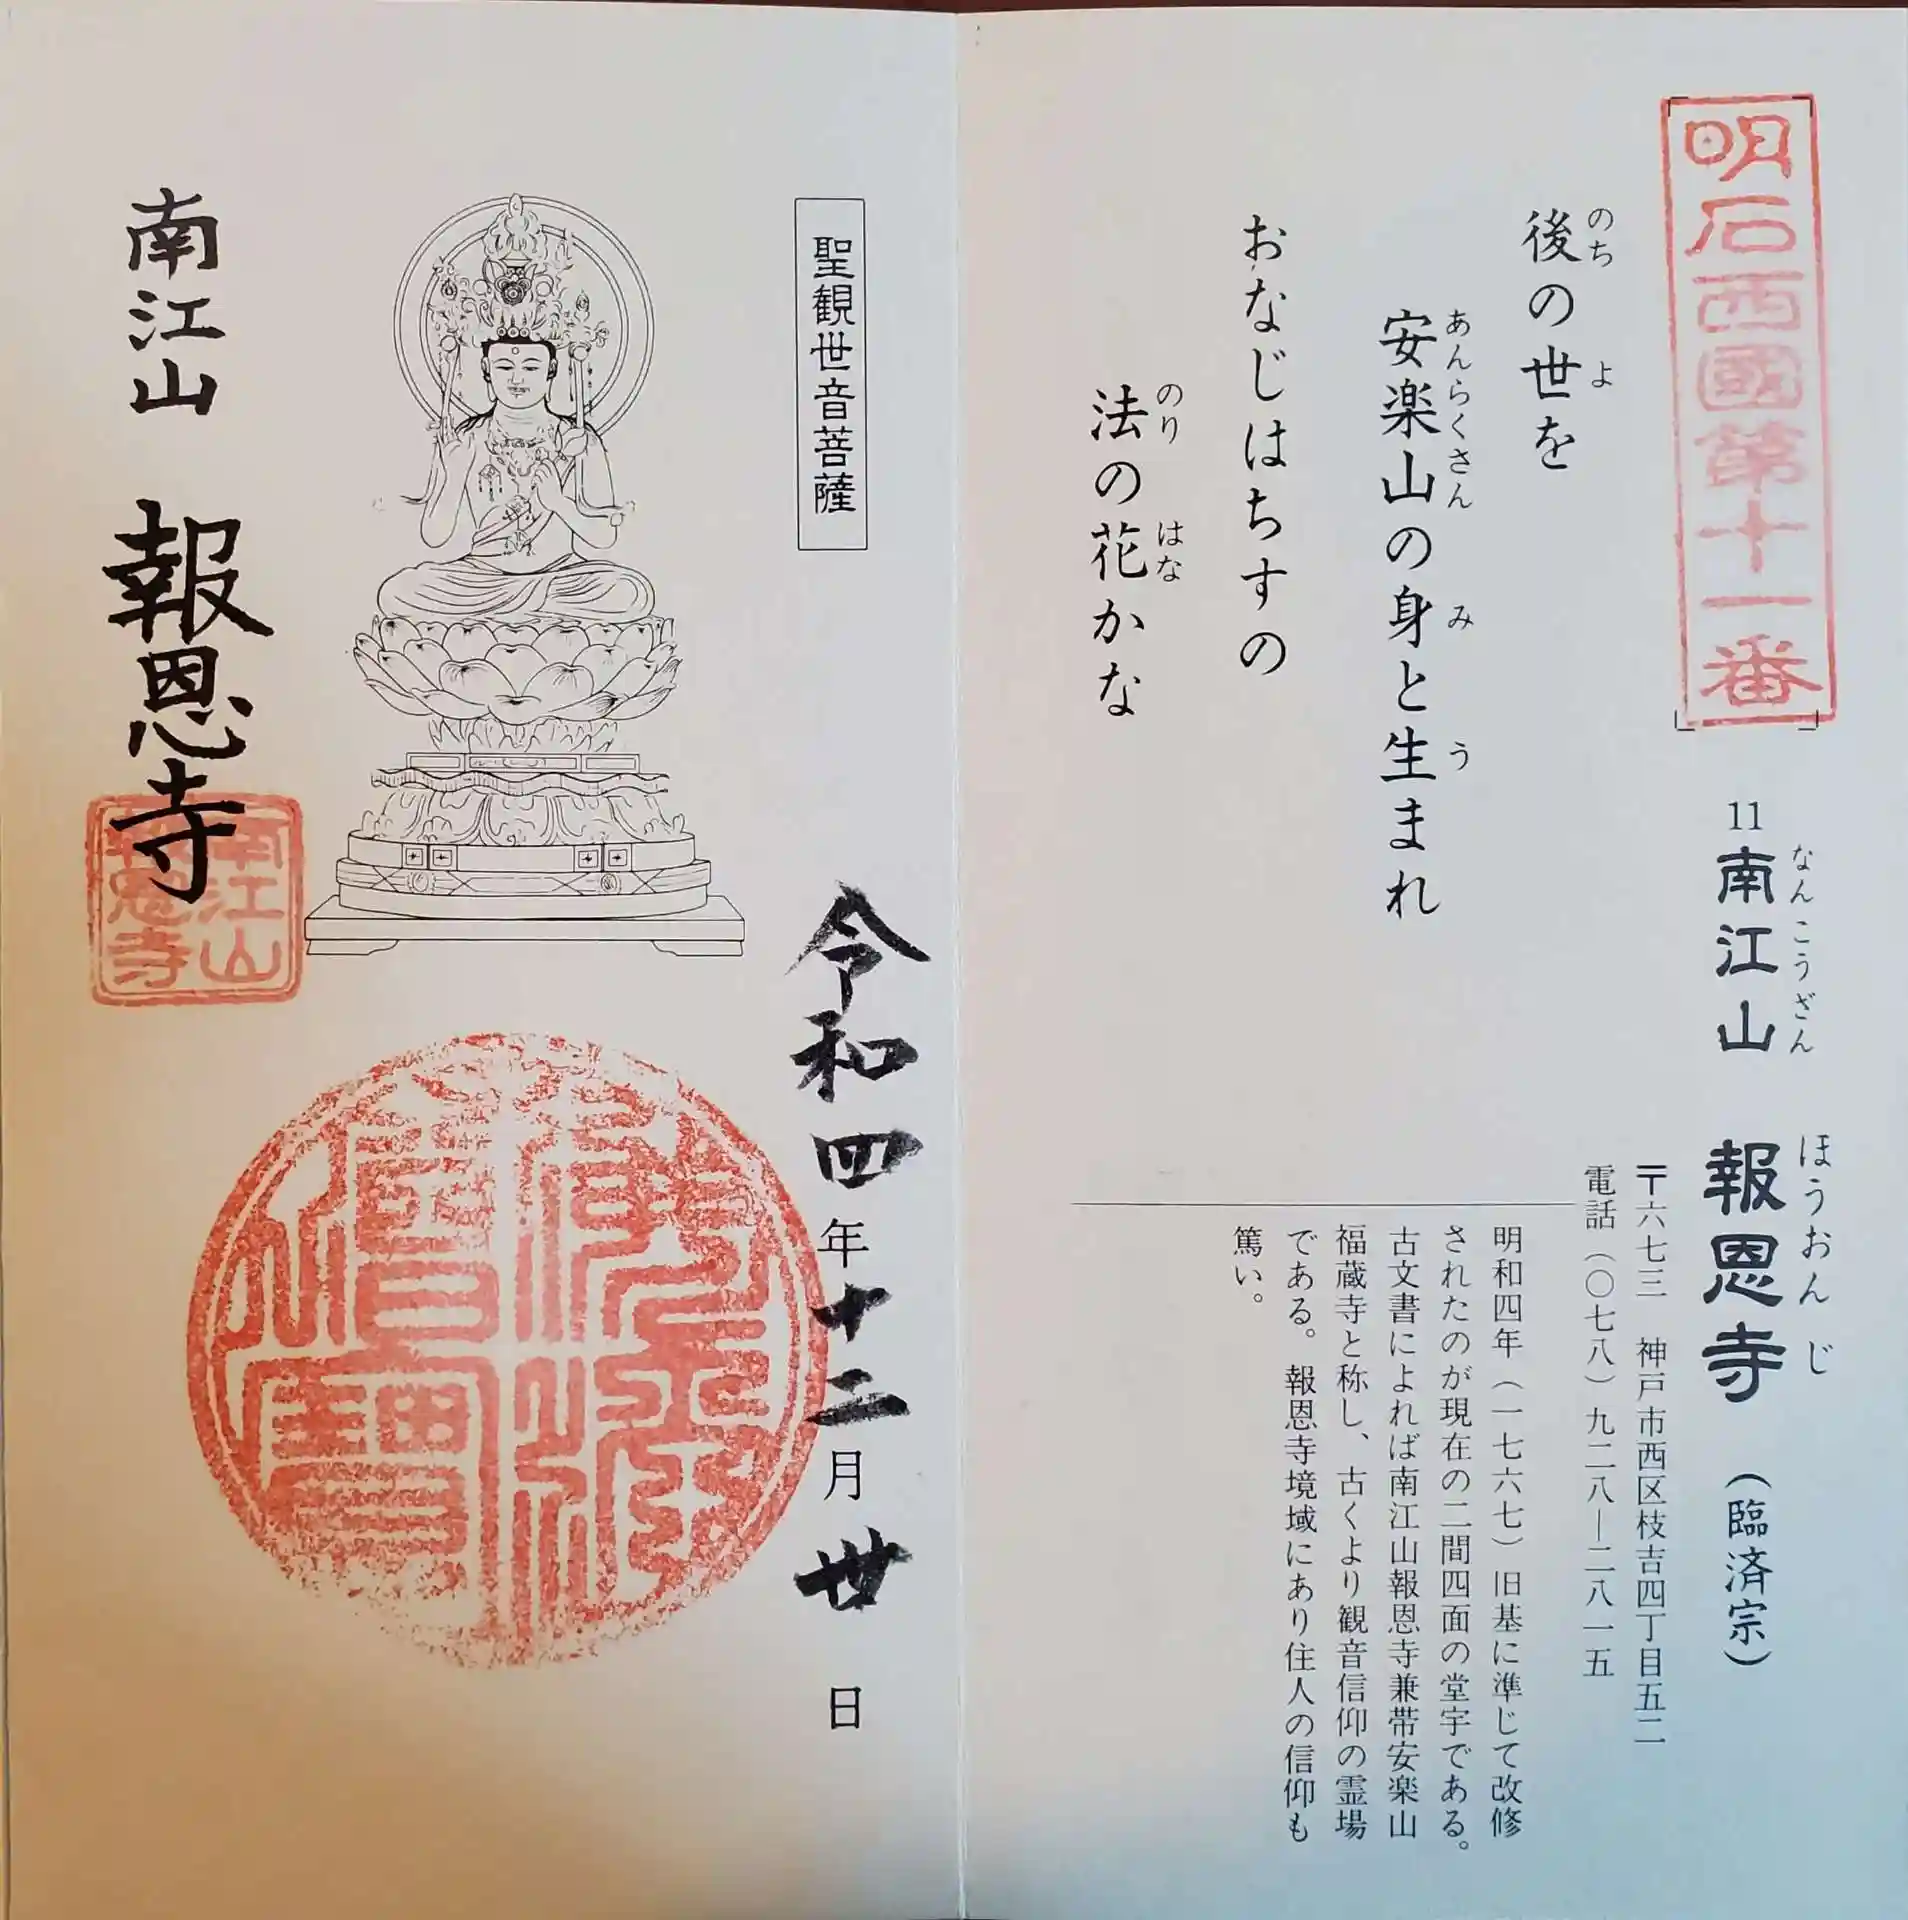 明石西國第十一番
11 南江山 報恩寺 (臨済宗)
なんこうざん ほうおんじ
〒六七三 神戸市西区枝吉四丁目五二
電話(〇七八)九二八―二八一五
後の世を
のち よ
安楽山の身と生まれ
あんらくさん み う
おなじはちすの
法の花かな
のり はな
明和四年(一七六七)旧基に準じて改修
されたのが現在の二間四面の堂宇である。
古文書によれば南江山報恩寺兼帯安楽山
福蔵寺と称し、古くより観音信仰の霊場
である。報恩寺境域にあり住人の信仰も
篤い。
聖観世音菩薩
令和四年十二月廿日
南江山 報恩寺
南江山
報恩寺